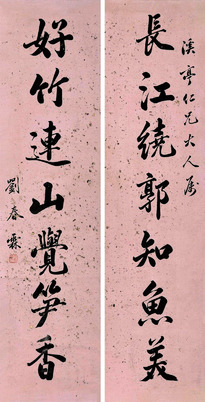 溪亭仁兄大人属
長江繞郭知魚美
好竹連山覺笋香
劉春霖